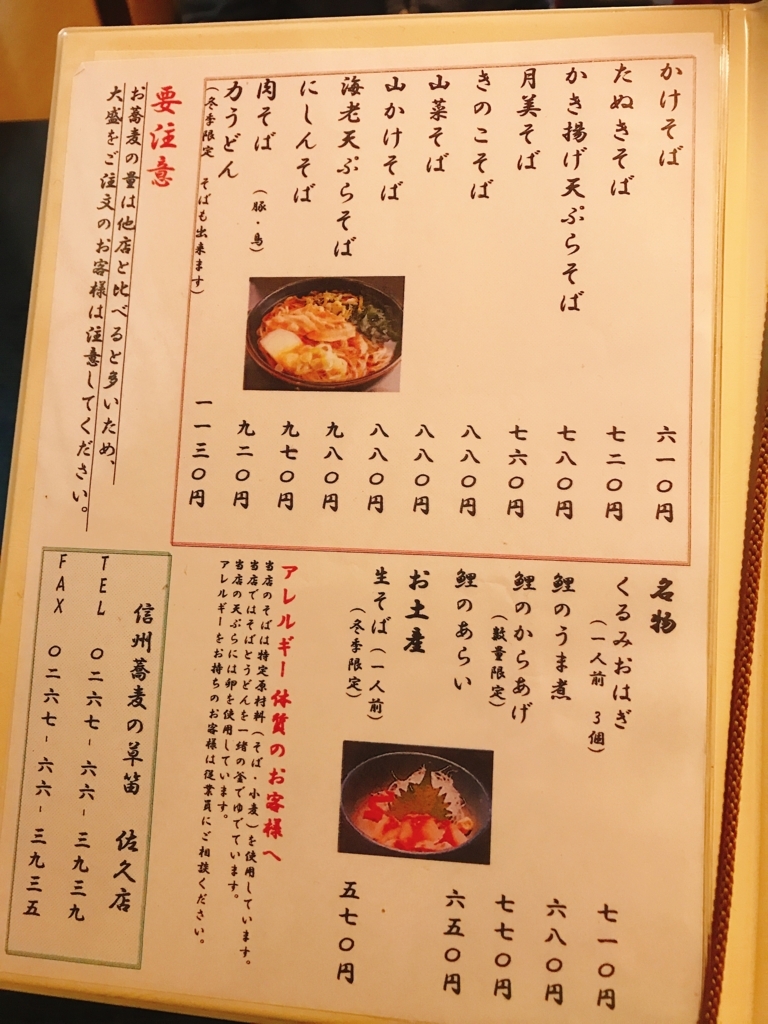 かけそば 六一〇円
たぬきそば 七二〇円
かき揚げ天ぷらそば 七八〇円
月美そば 七六〇円
きのこそば 八八〇円
山菜そば 八八〇円
山かけそば 八八〇円
海老天ぷらそば 九八〇円
にしんそば 九七〇円
肉そば (豚・鳥) 九二〇円
力うどん 一一三〇円
(冬季限定 そばも出来ます)
要注意
お蕎麦の量は他店と比べると多いため、
大盛をご注文のお客様は注意してください。
名物
くるみおはぎ 七一〇円
(一人前 3個)
鯉のうま煮 六八〇円
鯉のからあげ 七七〇円
(数量限定)
鯉のあらい 六五〇円
お土産
生そば(一人前) 五七〇円
(冬季限定)
アレルギー体質のお客様へ
当店のそばは特定原材料(そば・小麦)を使用しています。
当店ではそばとうどんを一緒の釜でゆでています。
当店の天ぷらには卵を使用しています。
アレルギーをお持ちのお客様は従業員にご相談ください。
信州蕎麦の草笛 佐久店
TEL 〇二六七-六六-三九三九
FAX 〇二六七-六六-三九三五